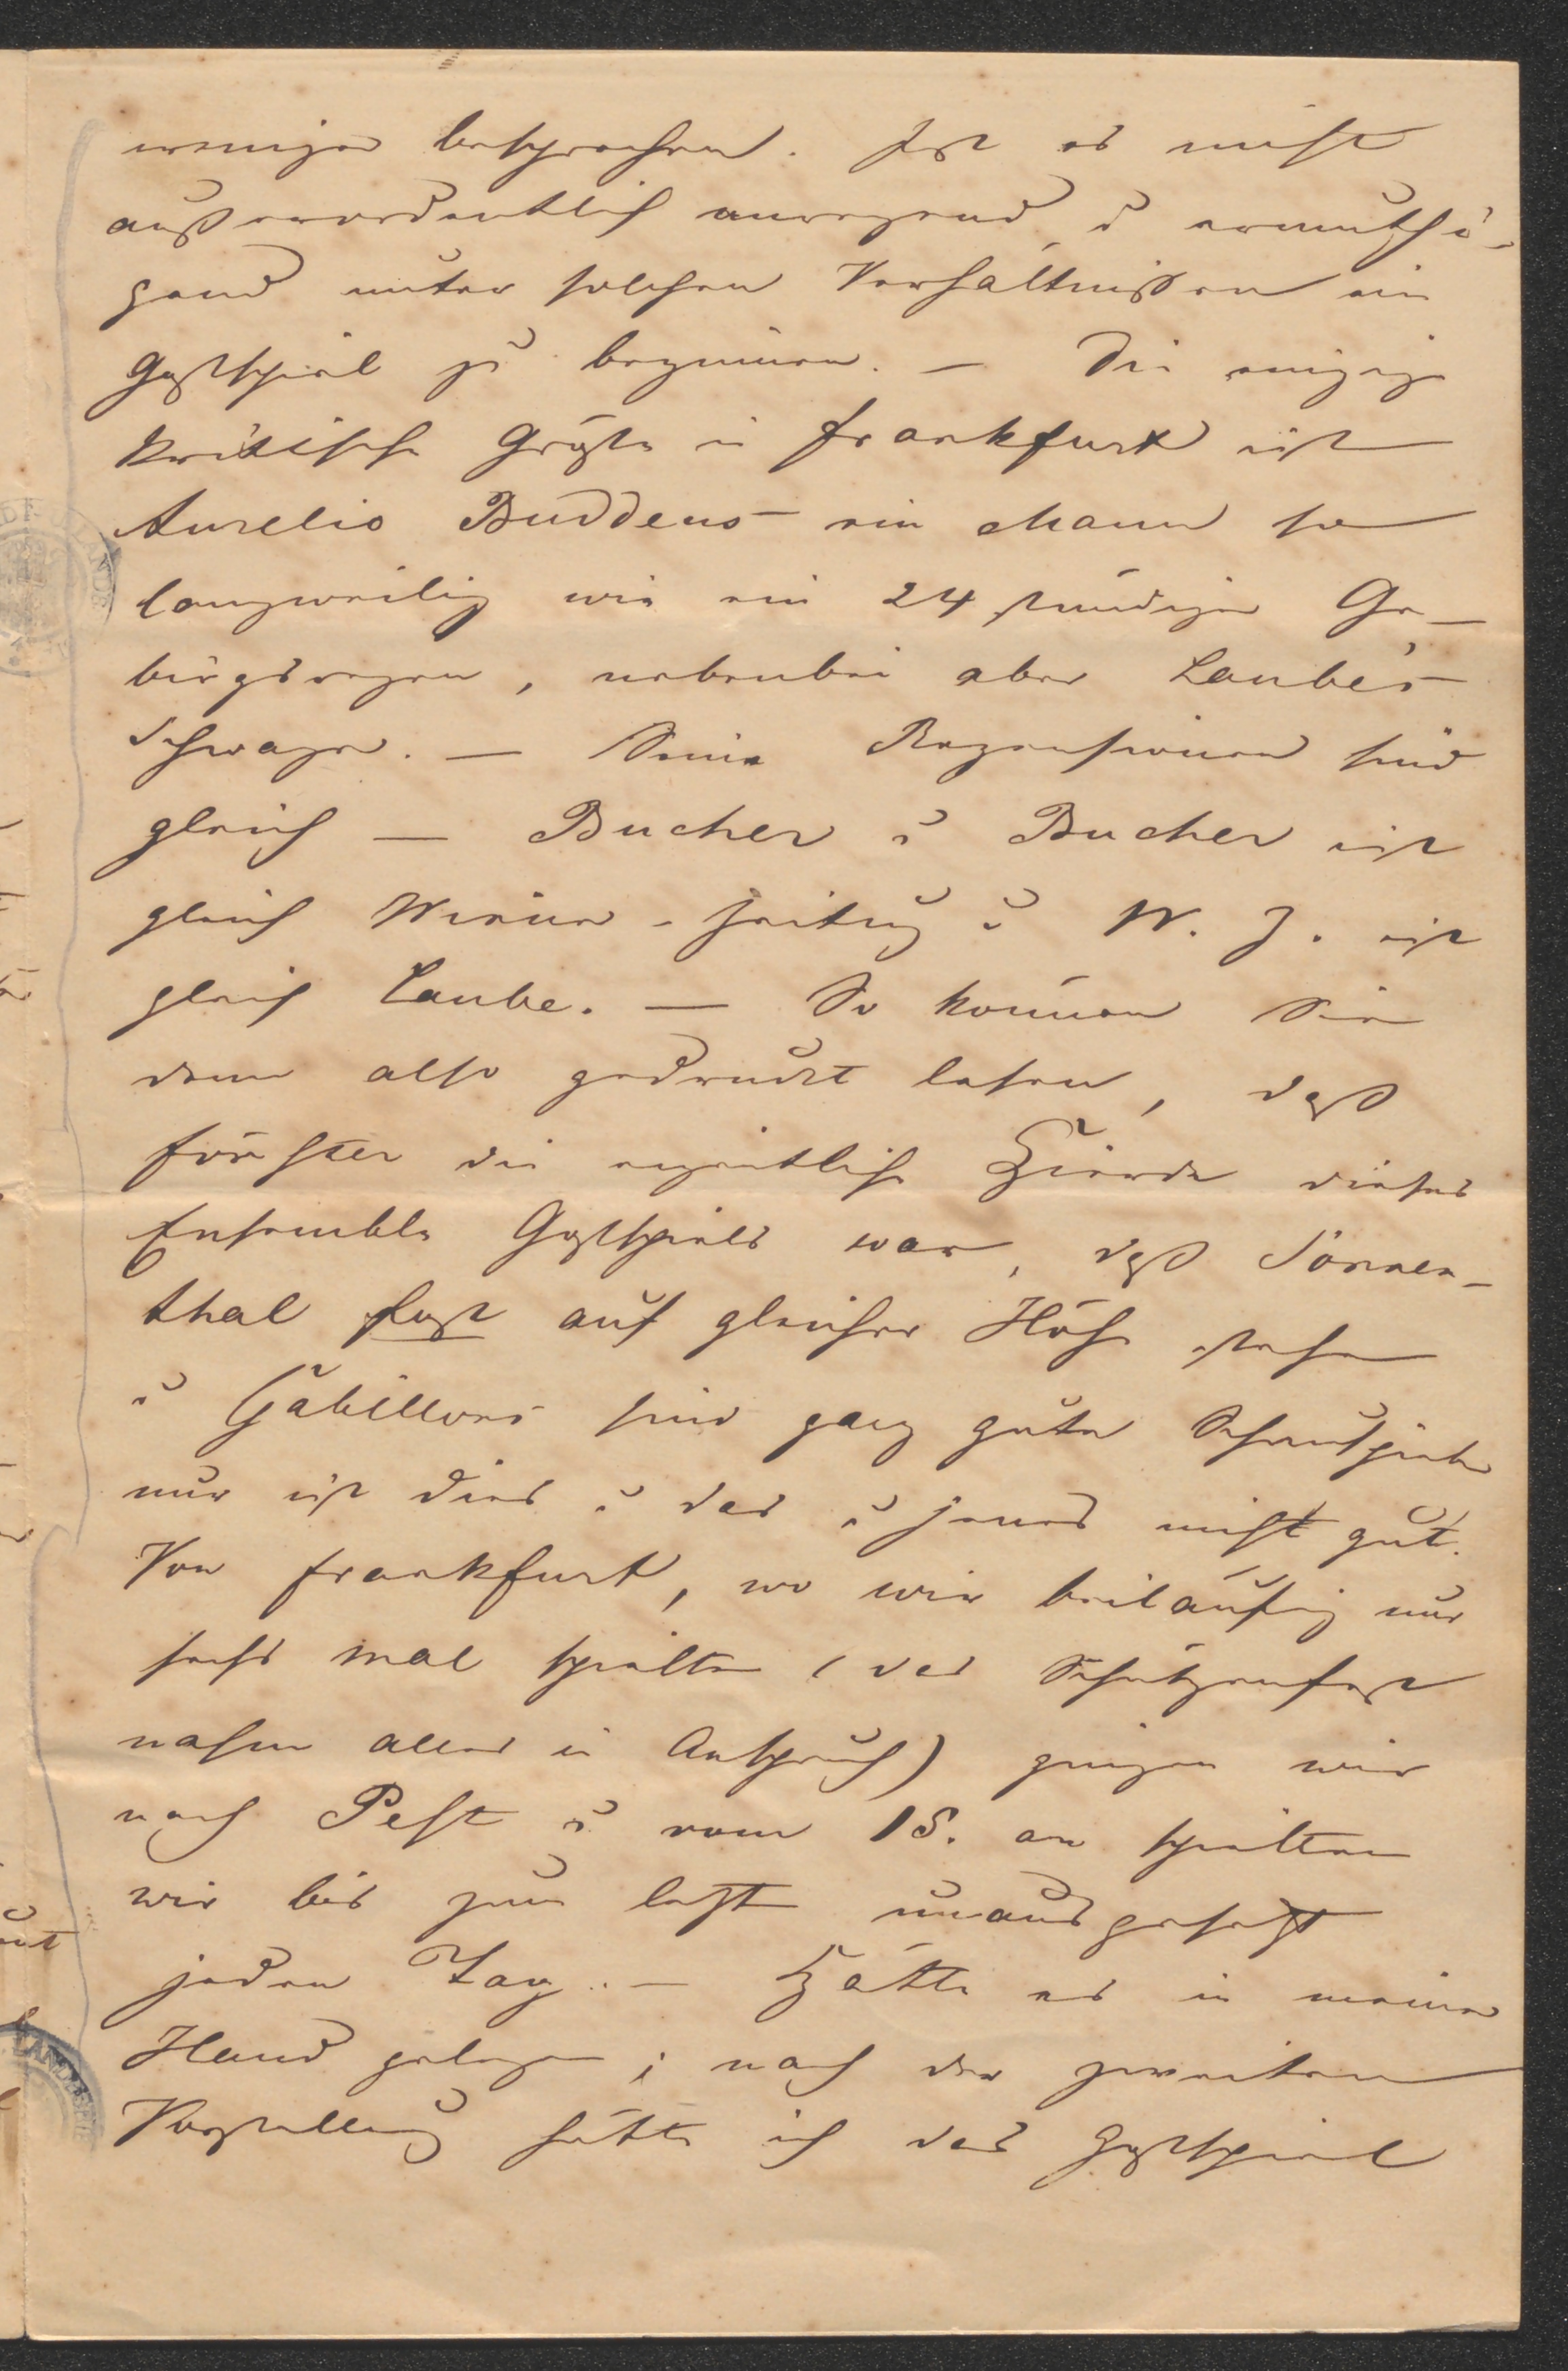 weniger besprochen. Ist es nicht
außerordentlich anregend u ermuthi-
gend unter solchen Verhältnißen ein
Gastspiel zu beginnen. — Die einzige
kritische Größe in Frankfurt ist
Aurelio Buddeus — ein Mann so
langweilig wie ein 24 stündiger Ge-
birgsregen, nebenbei aber Laube's
Schwager. — Seine Rezensionen sind
gleich — Bucher u Bucher ist
gleich Wiener-Zeitung u W. Z. ist
gleich Laube. — So können Sie
denn also gedruckt lesen, daß
Förster die eigentliche Zierde dieses
Ensemble Gastspiels war, daß Sonnen-
thal fast auf gleicher Höhe stehe
u Gabillons sind ganz gute Schauspieler
nur ist dies u das u jenes nicht gut.
Von Frankfurt, wo wir beiläufig nur
sechs mal spielten (das Schützenfest
nahm alles in Anspruch) gingen wir
nach Pest u vom 15. an spielten
wir bis zum letzt unausgesetzt
jeden Tag. — Hätte es in meiner
Hand gelegen; nach der zweiten
Vorstellung hätte ich das Gastspiel